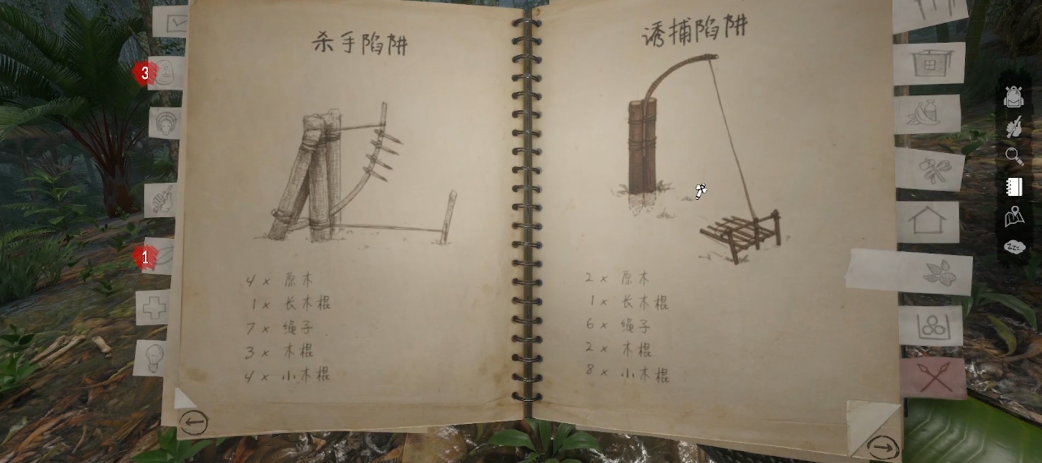 杀手陷阱
4 x 原木
1 x 长木棍
7 x 绳子
3 x 木棍
4 x 小木棍
诱捕陷阱
2 x 原木
1 x 长木棍
6 x 绳子
2 x 木棍
8 x 小木棍
3
1